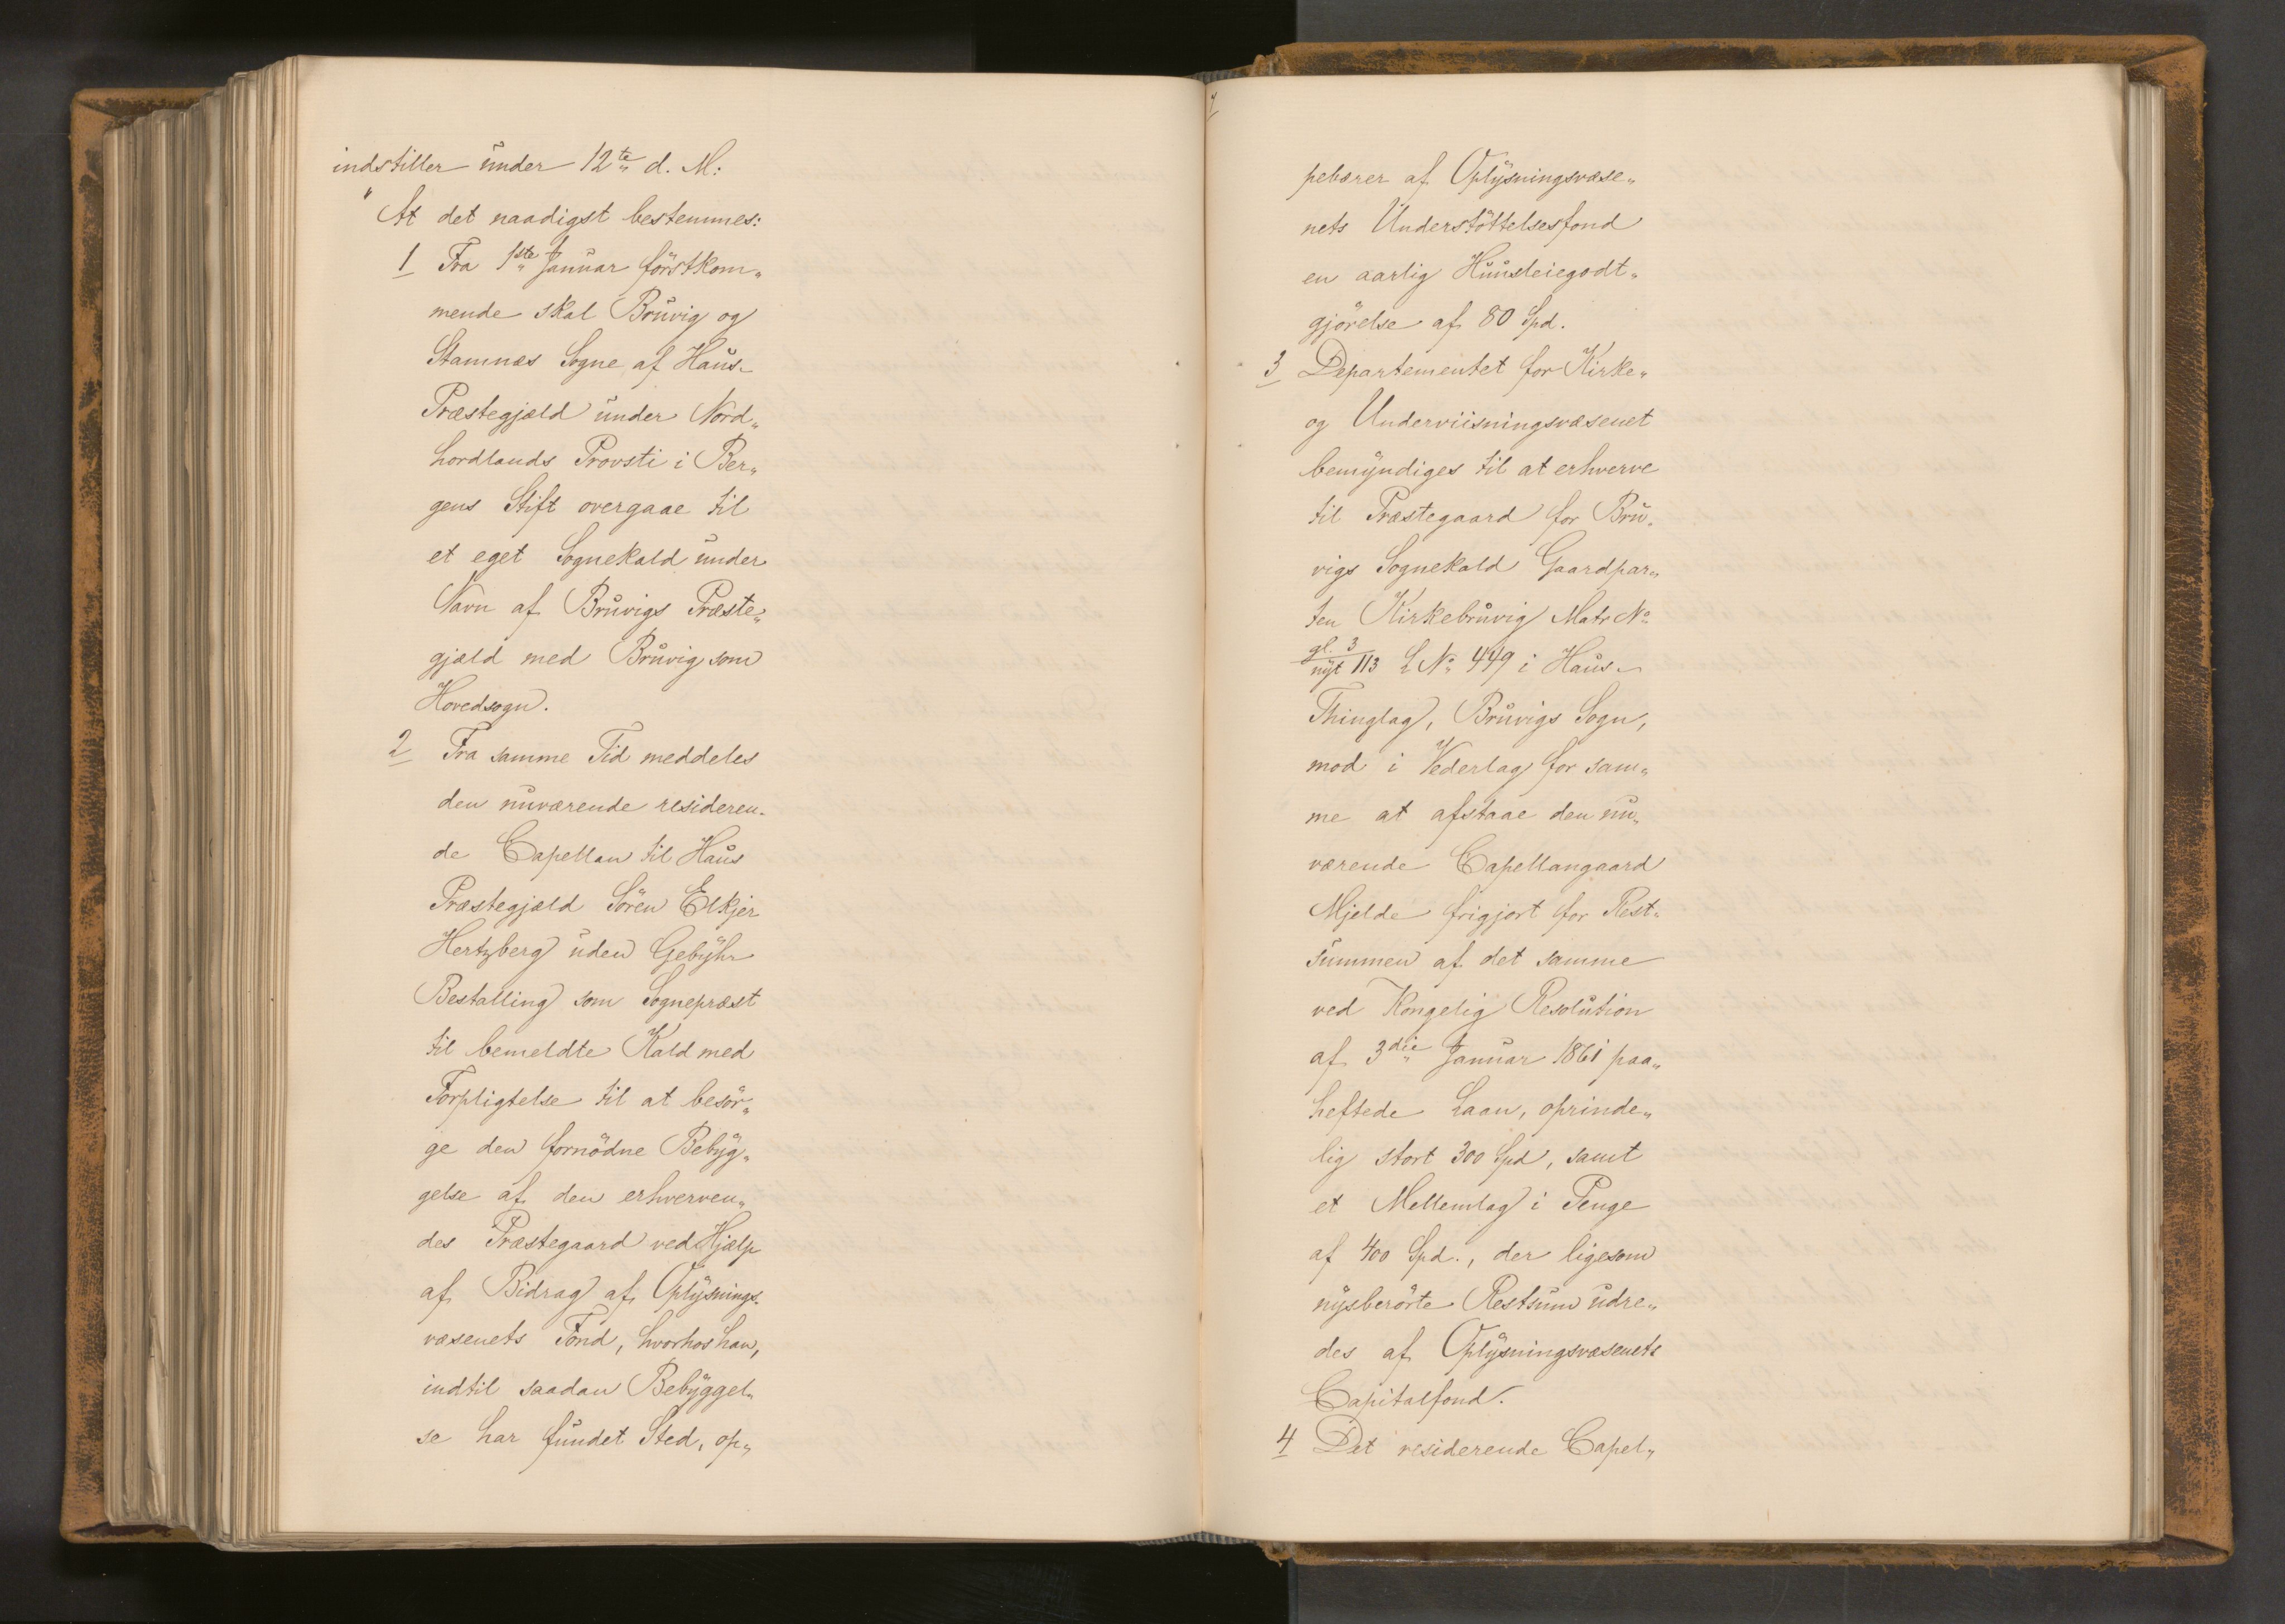 indstiller under 12te d. M:
"At det naadigst bestemmes:
1 Fra 1ste Januar förstkom„
mende skal Bruvig og
Stamnæs Sogne af Haus-
Præstegjæld under Nord„
hordlands Provsti i Ber„
gens Stift overgaae til
et eget Sognekald under
Navn af Bruvigs Præste„
gjæld med Bruvig som
Hovedsogn.
2 Fra samme Tid meddeles
den nuværende residéren-
de Capellan til Haus
Præstegjæld Sören Elkjer
Hertzberg uden Gebyhr
Bestalling som Sognepræst
til bemeldte Kald med
Forpligtelse til at besör„
ge den fornödne Bebyg„
gelse af den erhverven„
des Præstegaard ved Hjælp
af Bidrag af Oplysnings-
væsenets Fond, hvorhos han,
indtil saadan Bebyggel„
se har fundet Sted, op„
pebærer af Oplysningsvæse„
nets Understöttelsesfond
en aarlig Huusleiegodt„
gjörelse af 80 Spd.
3 Departementet for Kirke„
og Underviisningsvæsenet
bemyndiges til at erhverve
til Præstegaard for Bru„
vigs Sognekald Gaardpar„
ten Kirkebruvig Matr No
gl. 3
nyt 113 L No 449 i Haus-
Thinglag, Bruvigs Sogn,
mod i Vederlag for sam„
me at afstaae den nu„
værende Capellangaard
Mjelde frigjort for Rest„
summen af det samme
ved Kongelig Resolution
af 3die Januar 1861 paa„
heftede Laan, oprinde„
lig stort 300 Spd, samt
et Mellemlag i Penge
af 400 Spd., der ligesom
nysberörte Restsum udre„
des af Oplysningsvæsenets
Capitalfond.
4 Det residerende Capel„